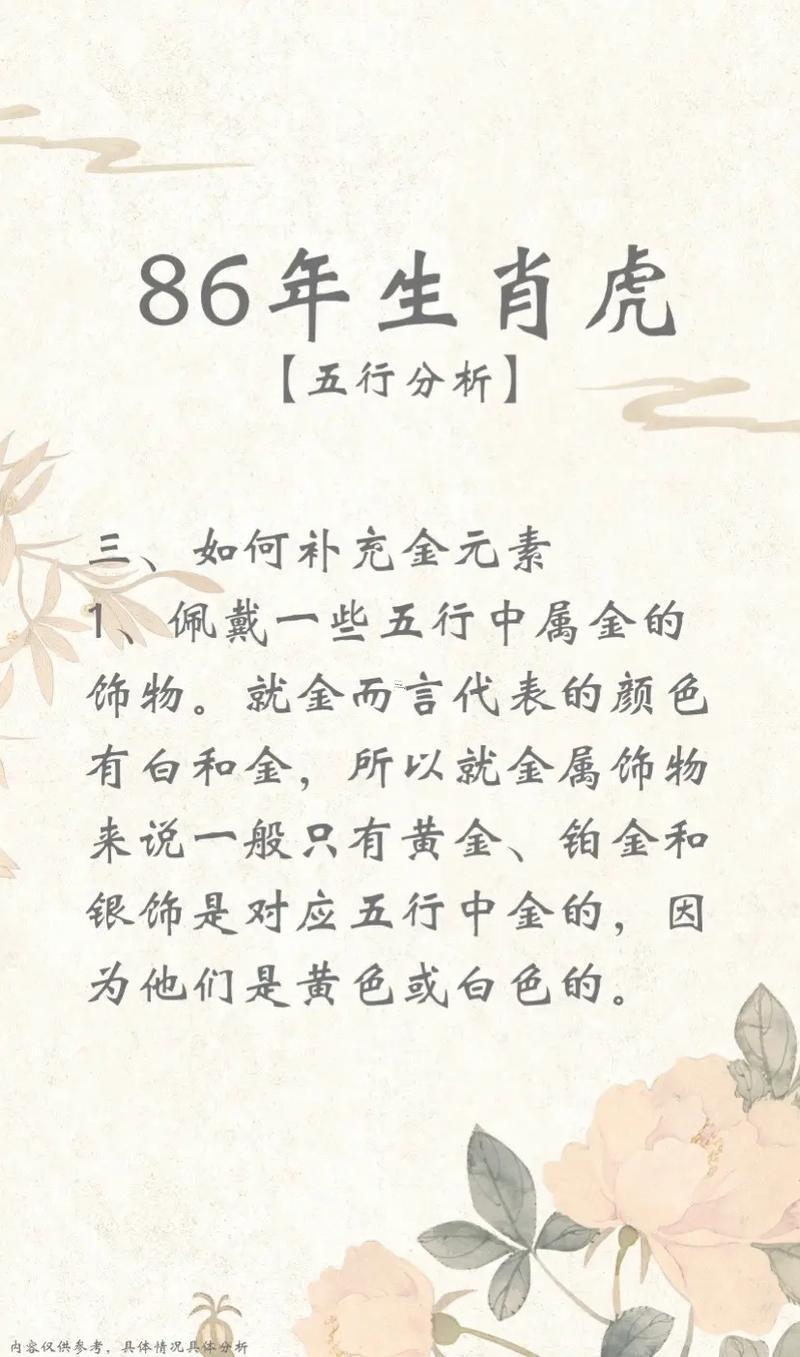 86年生肖虎
【五行分析】
三、如何补充金元素
1、佩戴一些五行中属金的
饰物。就金而言代表的颜色
有白和金，所以就金属饰物
来说一般只有黄金、铂金和
银饰是对应五行中金的，因
为他们是黄色或白色的。
内容仅供参考，具体情况具体分析